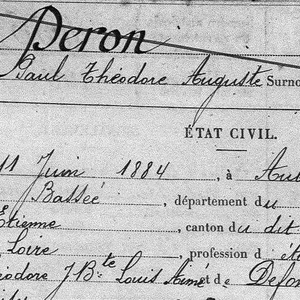 Peron
Paul Théodore Auguste Surno
ÉTAT CIVIL.
11 Juin 1884, à Au
Bassée, département du
Etienne, canton du dit
Loire, profession d ét
éodore J. Bte Louis Aimé et de Defon